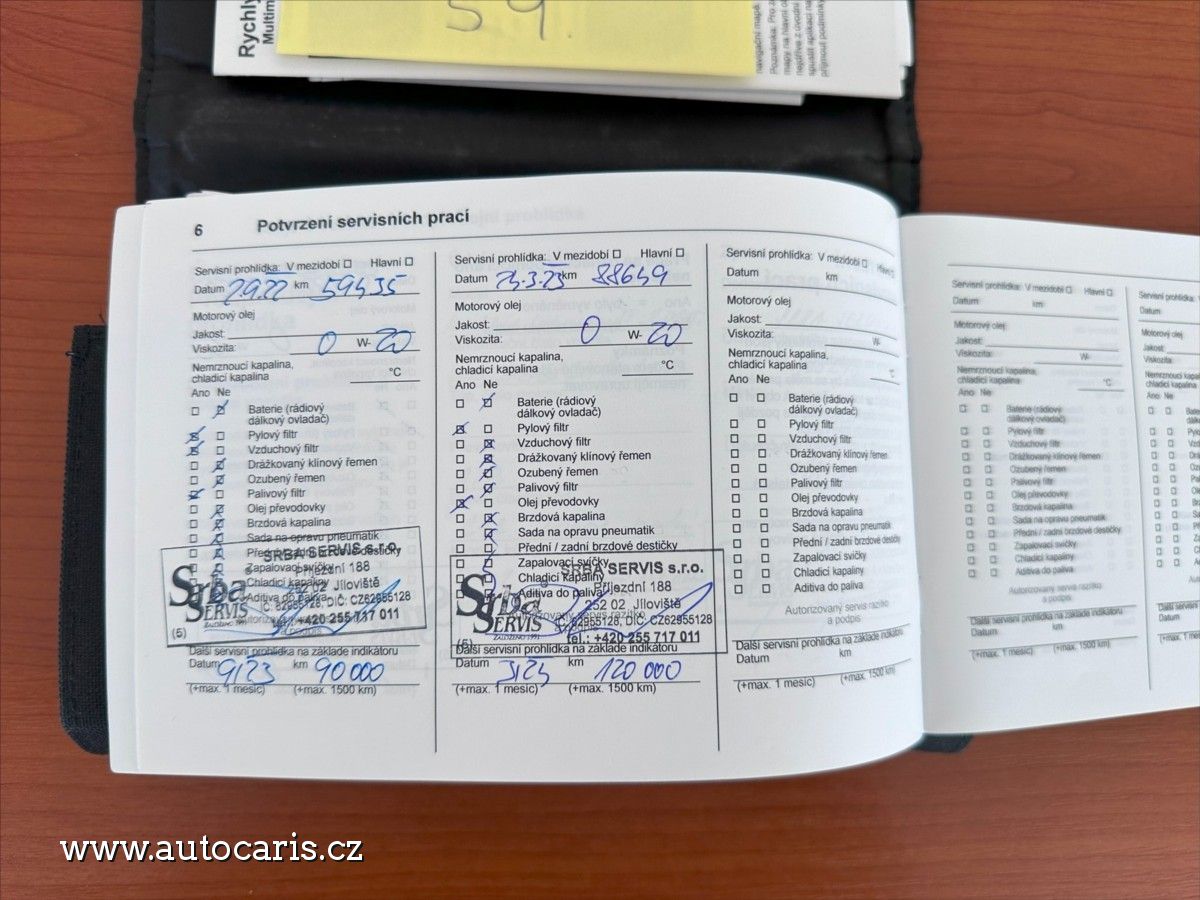 Rychlý
59.
6 Potvrzení servisních prací
Servisní prohlídka: V mezidobí ☐ Hlavní ☐
Datum 2.9.22 km 59435
Motorový olej
Jakost:
Viskozita: 0 W- 20
Nemrznoucí kapalina,
chladicí kapalina °C
Ano Ne
Baterie (rádiový
dálkový ovladač)
Pylový filtr
Vzduchový filtr
Drážkovaný klínový řemen
Ozubený řemen
Palivový filtr
Olej převodovky
Brzdová kapalina
Sada na opravu pneumatik
Přední / zadní brzdové destičky
Zapalovací svíčky
Chladicí kapaliny
Aditiva do paliva
SRBA SERVIS s.r.o.
Příjezdní 188
252 02 Jíloviště
Srba
SERVIS
tel.: +420 255 717 011
(5)
Další servisní prohlídka na základě indikátoru
Datum 9/23 km 90 000
(+max. 1 měsíc) (+max. 1500 km)
Servisní prohlídka: V mezidobí ☐ Hlavní ☐
Datum 24.3.23 km 88649
Motorový olej
Jakost:
Viskozita: 0 W- 20
Nemrznoucí kapalina,
chladicí kapalina °C
Ano Ne
Baterie (rádiový
dálkový ovladač)
Pylový filtr
Vzduchový filtr
Drážkovaný klínový řemen
Ozubený řemen
Palivový filtr
Olej převodovky
Brzdová kapalina
Sada na opravu pneumatik
Přední / zadní brzdové destičky
Zapalovací svíčky
Chladicí kapaliny
Aditiva do paliva
SRBA SERVIS s.r.o.
Příjezdní 188
252 02, Jíloviště
Srba
SERVIS
ZALOŽENO 1991
tel.: +420 255 717 011
(5)
Další servisní prohlídka na základě indikátoru
Datum 3/24 km 120 000
(+max. 1 měsíc) (+max. 1500 km)
Servisní prohlídka: V mezidobí ☐ Hlavní ☐
Datum km
Motorový olej
Jakost:
Viskozita: W-
Nemrznoucí kapalina,
chladicí kapalina °C
Ano Ne
Baterie (rádiový
dálkový ovladač)
Pylový filtr
Vzduchový filtr
Drážkovaný klínový řemen
Ozubený řemen
Palivový filtr
Olej převodovky
Brzdová kapalina
Sada na opravu pneumatik
Přední / zadní brzdové destičky
Zapalovací svíčky
Chladicí kapaliny
Aditiva do paliva
Autorizovaný servis razítko
a podpis
Další servisní prohlídka na základě indikátoru
Datum km
(+max. 1 měsíc) (+max. 1500 km)
Servisní prohlídka: V mezidobí ☐ Hlavní ☐
Datum km
Motorový olej
Jakost:
Viskozita: W-
Nemrznoucí kapalina,
chladicí kapalina °C
Ano Ne
Baterie (rádiový
dálkový ovladač)
Pylový filtr
Vzduchový filtr
Drážkovaný klínový řemen
Ozubený řemen
Palivový filtr
Olej převodovky
Brzdová kapalina
Sada na opravu pneumatik
Přední / zadní brzdové destičky
Zapalovací svíčky
Chladicí kapaliny
Aditiva do paliva
Autorizovaný servis razítko
a podpis
Další servisní prohlídka na základě indikátoru
Datum km
(+max. 1 měsíc) (+max. 1500 km)
Servisní prohlídka:
Datum
Motorový olej
Jakost:
Viskozita:
Nemrznoucí kapalina,
chladicí kapalina
Ano Ne
www.autocaris.cz